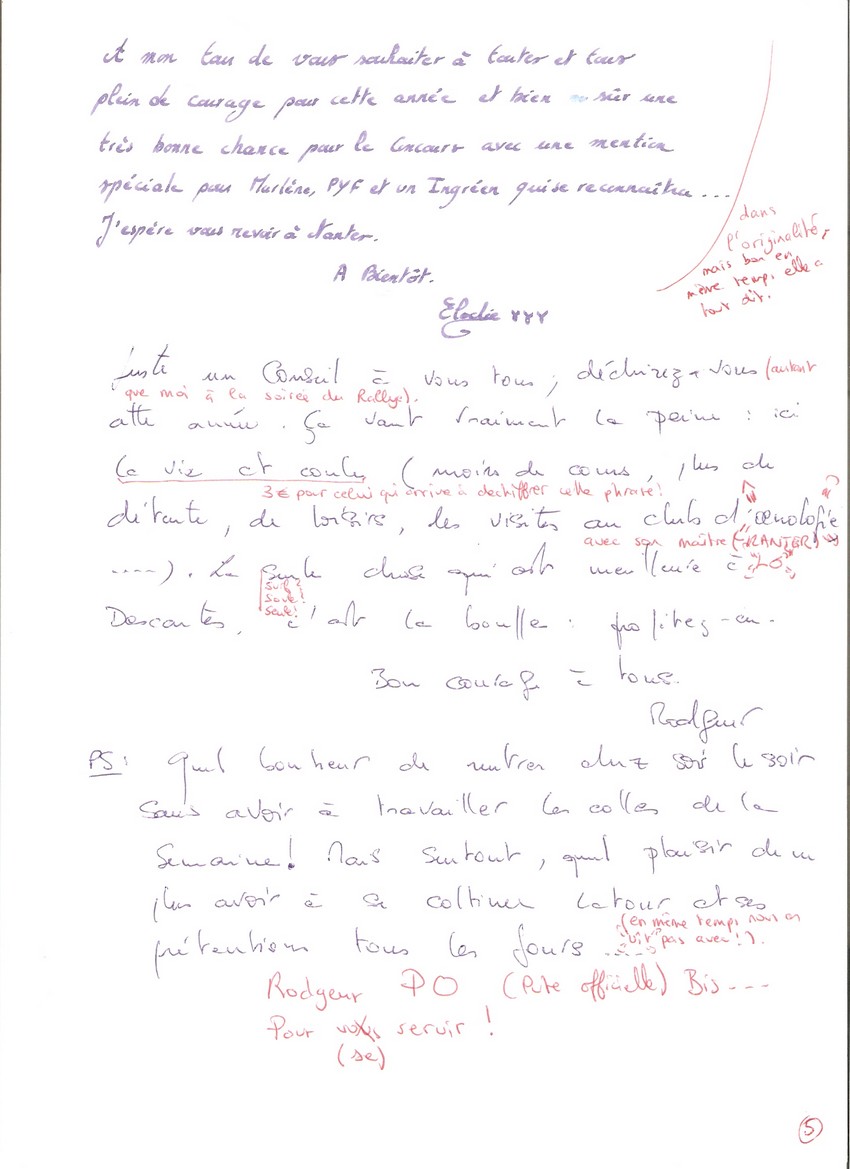 A mon tour de vous souhaiter à toutes et tous
plein de courage pour cette année et bien sûr une
très bonne chance pour le Concours avec une mention
spéciale pour Marlène, PYF et un Ingréen qui se reconnaîtra ...
J'espère vous revoir à Nanter.
A Bientôt.
Elodie
dans
l'originalité,
mais bon en
même temps elle a
tout dit.
Juste un Conseil à vous tous ; déchirez-vous (autant
que moi à la soirée du Rallye).
cette année. Ça vaut vraiment la peine : ici
la vie est coule (moins de cours, plus de
3€ pour celui qui arrive à dechiffrer cette phrase!
détente, de loisirs, les visites au club d'œnologie
avec son maître (GRANIER)
....). La seule chose qui est meilleure à
surf?
saule!
seule!
Descartes, c'est la bouffe : profitez-en.
Bon courage à tous.
Rodgeur
PS: Quel bonheur de rentrer chez soi le soir
sans avoir à travailler les colles de la
semaine! Mais surtout, quel plaisir de ne
plus avoir à se coltiner Latour et ses
(en même temps nous on
vit pas avec!).
prétentions tous les jours .....
Rodgeur PO (Pute officielle) Bis ...
Pour vous servir !
(se)
5